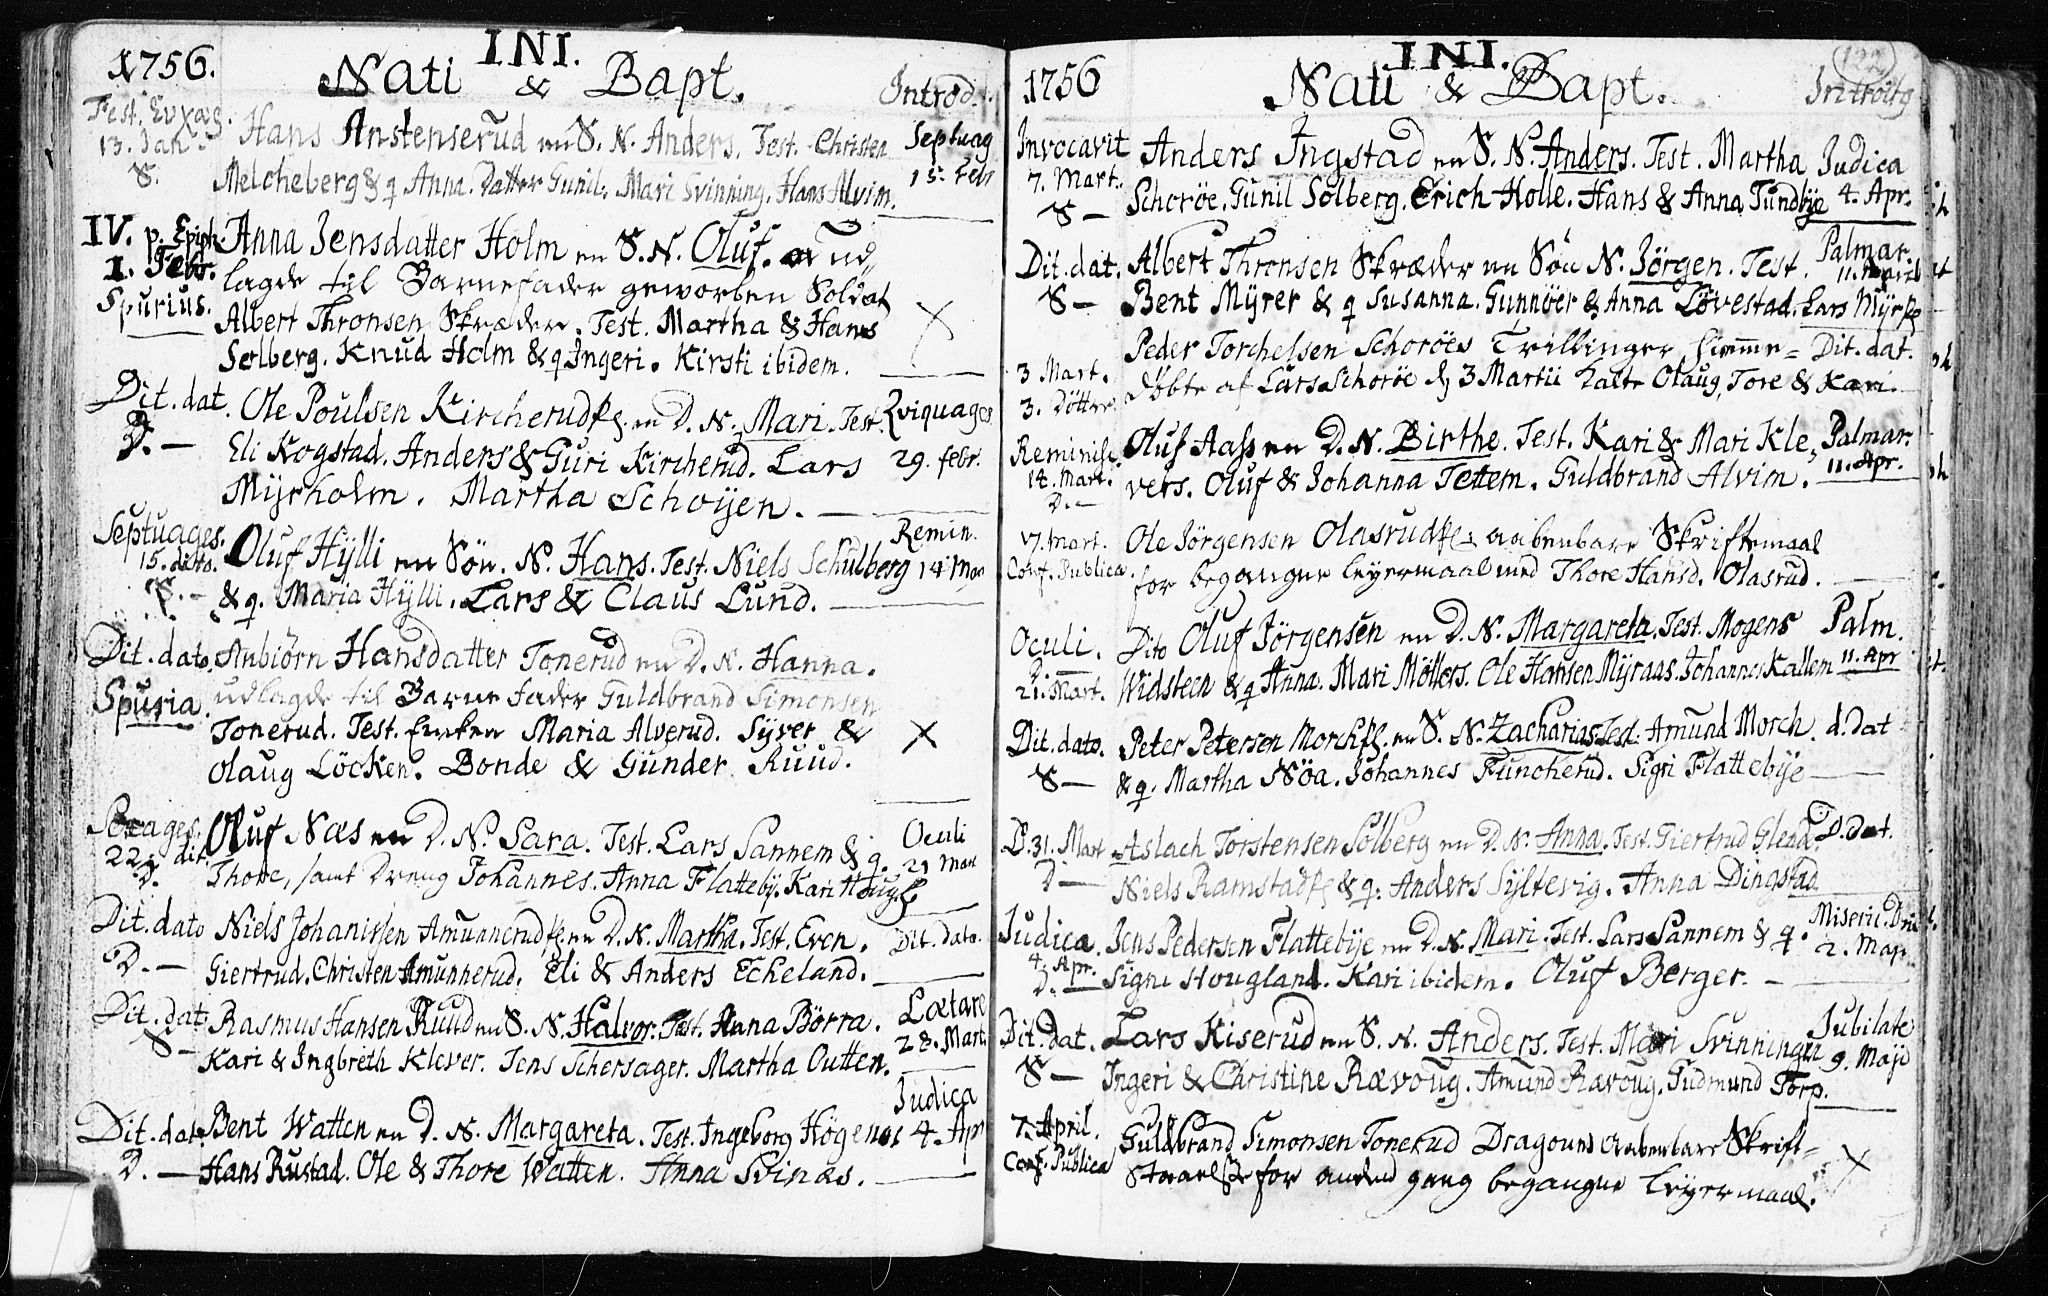 INI.
1756. Nati & Bapt. Introd.
Fest. Evxag. Hans Anstenserud en S. N. Anders. Test. Christen Septuag
13. Jan. S. Melcheberg & q Anna. Datter Gunil. Mari Svinning. Hans Alvim. 15. Febr
IV. p. Epiph. Anna Jensdatter Holm en S. N. Oluf. ud„
1. Febr. lagde til Barnefader geworben Soldat
Spurius. Albert Thronsen Skræder. Test. Martha & Hans
Solberg. Knud Holm & q Ingeri. Kirsti ibidem.
Dit. dat. Ole Poulsen Kircherud en D. N. Mari. Test. Qviquages
D. — Eli Kogstad. Anders & Guri Kircherud. Lars 29. febr.
Myrholm. Martha Schoyen. —
Septuages. Oluf Hylli en Sön. N. Hans. Test. Niels Schulberg Remin. 14 Mar
15. dito. S. — & q. Maria Hylli. Lars & Claus Lund. —
Dit. dato. Anbiörn Hansdatter Tonerud en D. N. Hanna.
Spuria. udlagde til Barnefader Guldbrand Simonsen
Tonerud. Test. Enken Maria Alverud. Syver &
Olaug Löcken. Bonde & Gunder Ruud. X
Sexages. Oluf Næs en D. N. Sara. Test. Lars Sannem & q. Oculi
22. dit. D. Thore, samt Dreng Johannes. Anna Flatteby. Kari 21 Mart
Dit. dato Niels Johannsen Amunnerud en D. N. Martha. Test. Even. Dit. dato.
D. — Giertrud. Christen Amunnerud. Eli & Anders Eckeland. —
Dit. dat. Rasmus Hansen Ruud en S. N. Halvor. Test. Anna Börra. Lætare
S — Kari & Ingbreth Klever. Jens Schersager. Martha Outten. 28. Mart.
Dit. dat. Bent Watten en D. N. Margareta. Test. Ingeborg Högenes Judica 4. Apr
D. — Hans Rustad. Ole & Thore Watten. Anna Svinæs. —
INI. 122
1756 Nati & Bapt. Introitg
Invocavit Anders Ingstad en S. N. Anders. Test. Martha Judica
7. Mart. S — Schoröe. Gunil Solberg. Erich Holle. Hans & Anna Tundbye 4. Apr.
Dit. dat. Albert Thronsen Skræder en Sön N. Jörgen. Test. Palmar.
S — Bent Myrer & q Susanna. Gunnöer & Anna Lövestad. Lars Myre 11. April
Peder Torchelsen Schoröes Trillinger hiemme= Dit. dat.
3 Mart. 3. Döttre döbte af Lars Schoröe d. 3 Martii kalte Olaug, Tore & Kari.
Reminisc. Oluf Aass en D. N. Birthe. Test. Kari & Mari Kle„ Palmar.
14. Mart. D. — vers. Oluf & Johanna Tettem. Guldbrand Alvim. 11. Apr.
7. Mart. Ole Jörgensen Olasrud aabenbare Skriftemaal
Conf. Publica. for begangne leyermaal med Thore Hansd. Olasrud. —
Oculi. Dito Oluf Jörgensen en D. N. Margareta. Test. Mogens Palm.
D. 21. Mart. Widsteen & q Anna. Mari Möllers. Ole Hansen Myraas. Johannes Kallem 11. Apr
Dit. dato. Peter Petersen Morch en S. N. Zacharias. Test. Amund Morch. d. dat
S — & q. Martha Nöa. Johannes Funcherud. Sigri Flattebye —
D. 31. Mart Aslach Torstensen Solberg en D. N. Anna. Test. Giertrud Glenne. D. dat.
D — Niels Ramstad & q. Anders Syltevig. Anna Dingstad
Judica. Jens Pedersen Flattebye en D. N. Mari. Test. Lars Sannem & q. Miseric. Dni
4. Apr. D. — Signe Hougland. Kari ibidem. Oluf Berger. — 2. Maj
Dit. dat. Lars Kiserud en S. N. Anders. Test. Mari Svinningen Jubilate
S — Ingeri & Christine Rævoug. Amund Rævoug. Gudmund Torp. 9. Maji
7. April. Guldbrand Simonsen Tonerud Dragouns Aabenbare Skrift=
Conf. Publica for anden gang begangne Leyermaal. X